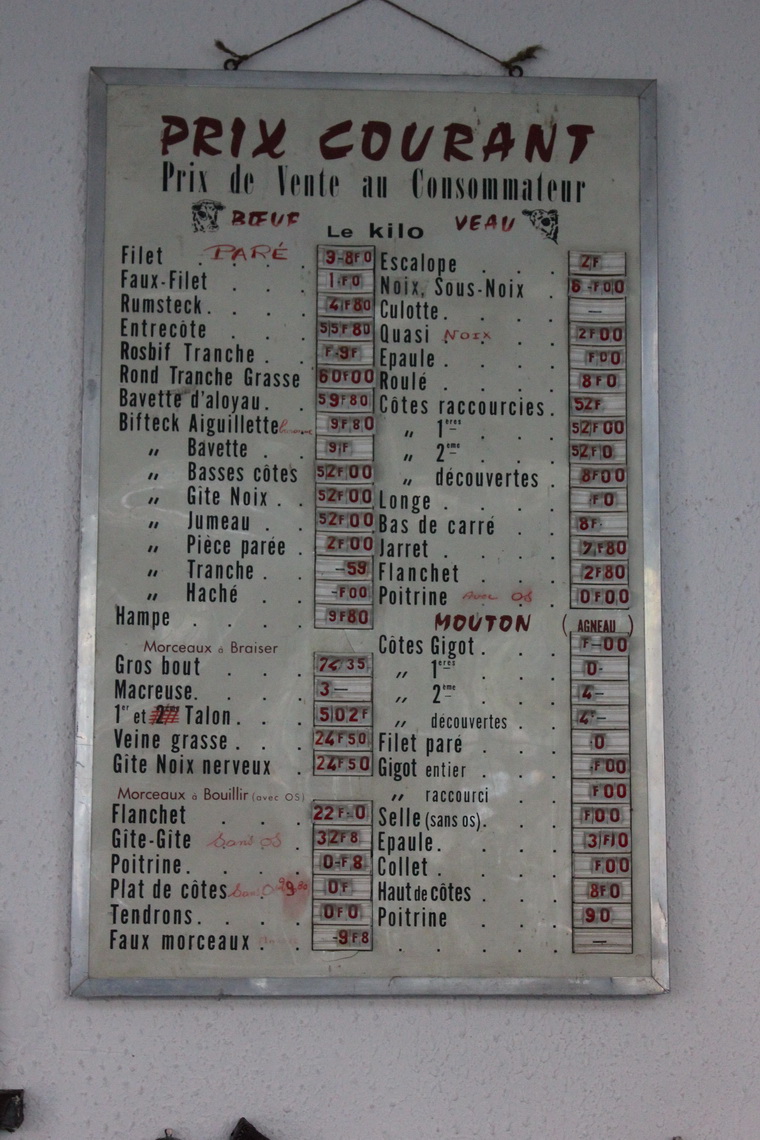 PRIX COURANT
Prix de Vente au Consommateur
BŒUF
Le kilo
VEAU
Filet PARÉ 9-8F0
Faux-Filet 1-F0
Rumsteck 4F80
Entrecôte 55F80
Rosbif Tranche F-9F
Rond Tranche Grasse 60F00
Bavette d'aloyau 59F80
Bifteck Aiguillette 9F80
〃 Bavette 9F
〃 Basses côtes 52F00
〃 Gîte Noix 52F00
〃 Jumeau 52F00
〃 Pièce parée 2F00
〃 Tranche -59
〃 Haché -F00
Hampe 9F80
Morceaux à Braiser
Gros bout 35
Macreuse 3-
1er et Talon 502F
Veine grasse 24F50
Gite Noix nerveux 24F50
Morceaux à Bouillir (avec OS)
Flanchet 22F-0
Gîte-Gîte Sans OS 32F8
Poitrine 0-F8
Plat de côtes 0F
Tendrons 0F0
Faux morceaux -9F8
Escalope 2F
Noix, Sous-Noix 6-F00
Culotte -
Quasi Noix 2F00
Epaule F00
Roulé 8F0
Côtes raccourcies 52F
〃 1ères 52F00
〃 2ème 52F0
〃 découvertes 8F00
Longe F0
Bas de carré 8F-
Jarret 7F80
Flanchet 2F80
Poitrine avec OS 0F00
MOUTON (AGNEAU)
Côtes Gigot F-00
〃 1ères 0-
〃 2ème 4-
〃 découvertes 4F-
Filet paré 0
Gigot entier -F00
〃 raccourci F00
Selle (sans os) F00
Epaule 3F10
Collet F00
Haut de côtes 8F0
Poitrine 90
-